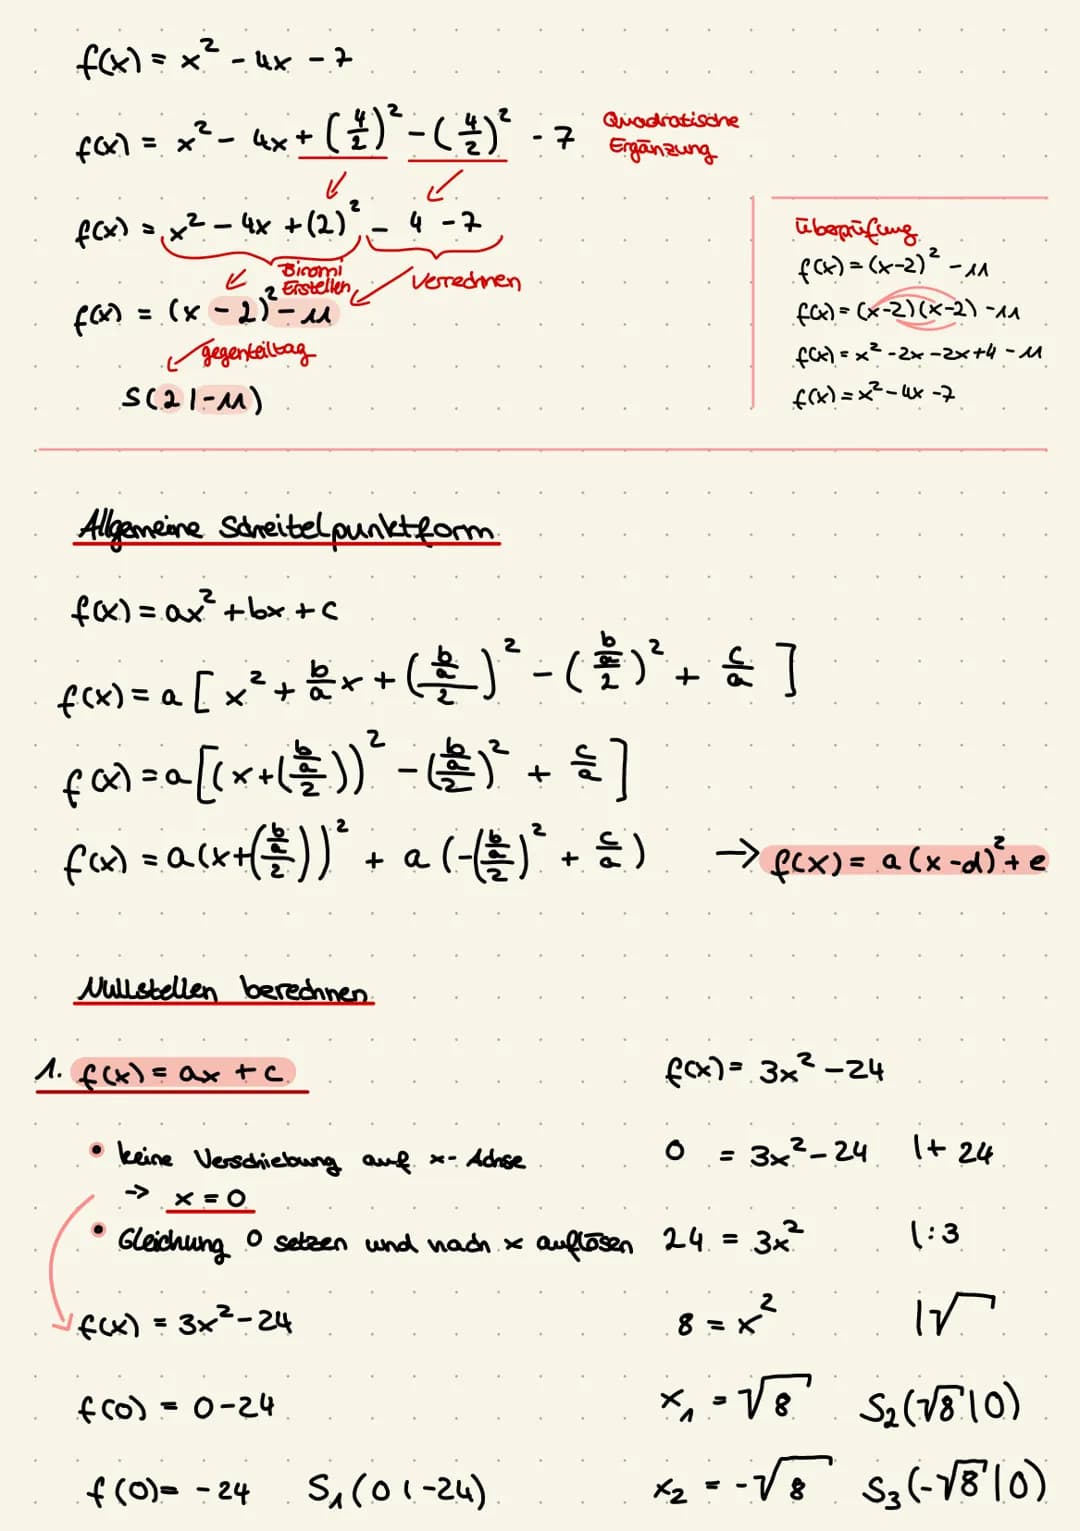 f(x) = x² - 4x - 7
f(x) = x² - 4x + (4/2)² - (4/2)² - 7 Quadratische Ergänzung
f(x) = x² - 4x + (2)² - 4 - 7
Binomi Erstellen
Verrechnen
f(x) = (x - 2)² - 11
gegenteiltag
S(2|-11)
Überprüfung
f(x) = (x-2)² - 11
f(x) = (x-2)(x-2) - 11
f(x) = x² - 2x - 2x + 4 - 11
f(x) = x² - 4x - 7
Allgemeine Schreitelpunktform
f(x) = ax² + bx + c
f(x) = a [ x² + b/a x + ((b/a)/2)² - ((b/a)/2)² + c/a ]
f(x) = a[(x+((b/a)/2))² - ((b/a)/2)² + c/a ]
f(x) = a(x+((b/a)/2))² + a (-((b/a)/2)² + c/a) → f(x) = a (x-d)² + e
Nullstellen berechnen
1. f(x) = ax + c
• keine Verschiebung auf x-Achse
→ x = 0
• Gleichung 0 setzen und nach x auflösen
f(x) = 3x² - 24
f(0) = 0 - 24
f(0) = - 24 S₁(0|-24)
f(x) = 3x² - 24
0 = 3x² - 24 |+ 24
24 = 3x² |:3
8 = x² |√
x₁ = √8 S₂(√8|0)
x₂ = -√8 S₃(-√8|0)